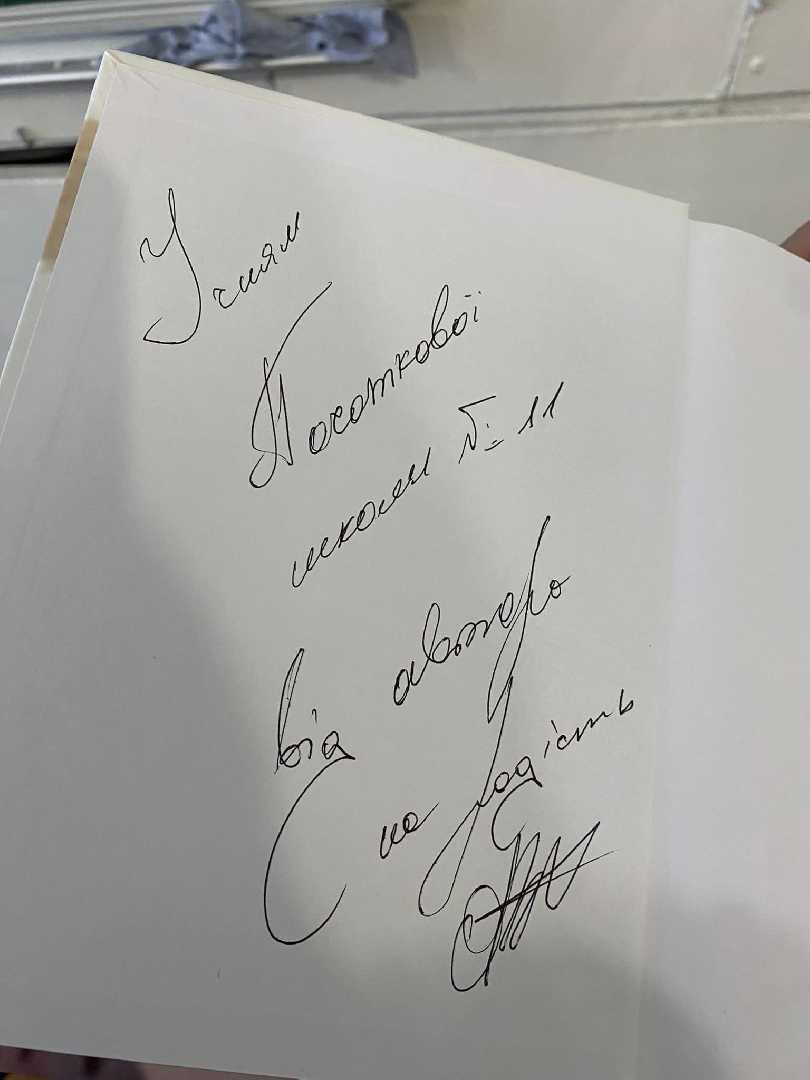 Учням
Початкової
школи № 11
від автора
на радість